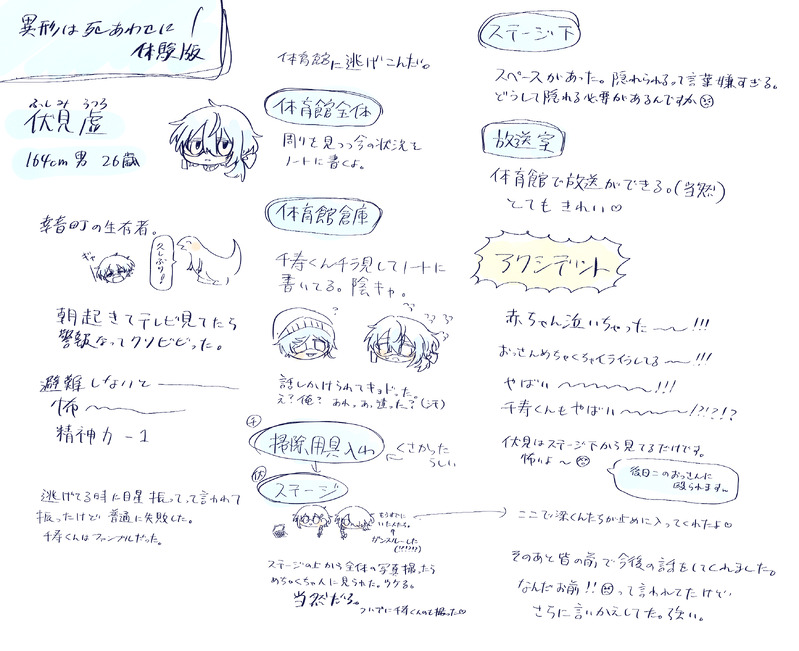 異形は死あわせに
体験版
ふしみ うつろ
伏見 虚
164cm 男 26歳
幸音町の生存者。
ギャ
久しぶり!
朝起きてテレビ見てたら
警報なってクソビビった。
避難しないと
怖〜
精神力 -1
逃げてる時に目星振ってって言われて
振ったけど普通に失敗した。
千寿くんはファンブルだった。
体育館に逃げこんだ。
体育館全体
周りを見つつ今の状況を
ノートに書くよ。
体育館倉庫
千寿くんチラ見してノートに
書いてる。陰キャ。
?
話しかけられてキョドった。
え?俺? あれ。あ、違った?(汗)
千
掃除用具入れ
くさかった
らしい
伏
ステージ
ステージの上から全体の写真撮ったら
めちゃくちゃ人に見られた。ウケる。
当然だろ。
ついでに千寿くんのも撮った♡
ステージ下
スペースがあった。隠れられるって言葉嫌すぎる。
どうして隠れる必要があるんですか
放送室
体育館で放送ができる。(当然)
とてもきれい♡
アクシデント
赤ちゃん泣いちゃった〜〜!!!
おっさんめちゃくちゃイライラしてる〜!!!
やばい〜〜〜!!!
千寿くんもやばい〜〜〜!?!?!?
伏見はステージ下から見てるだけです。
怖いよ〜
後日このおっさんに
殴られます。
ここで深くんたちが止めに入ってくれたよ♡
そのあと皆の前で今後の話をしてくれました。
なんだお前!!って言われてたけど
さらに言いかえしてた。強い。